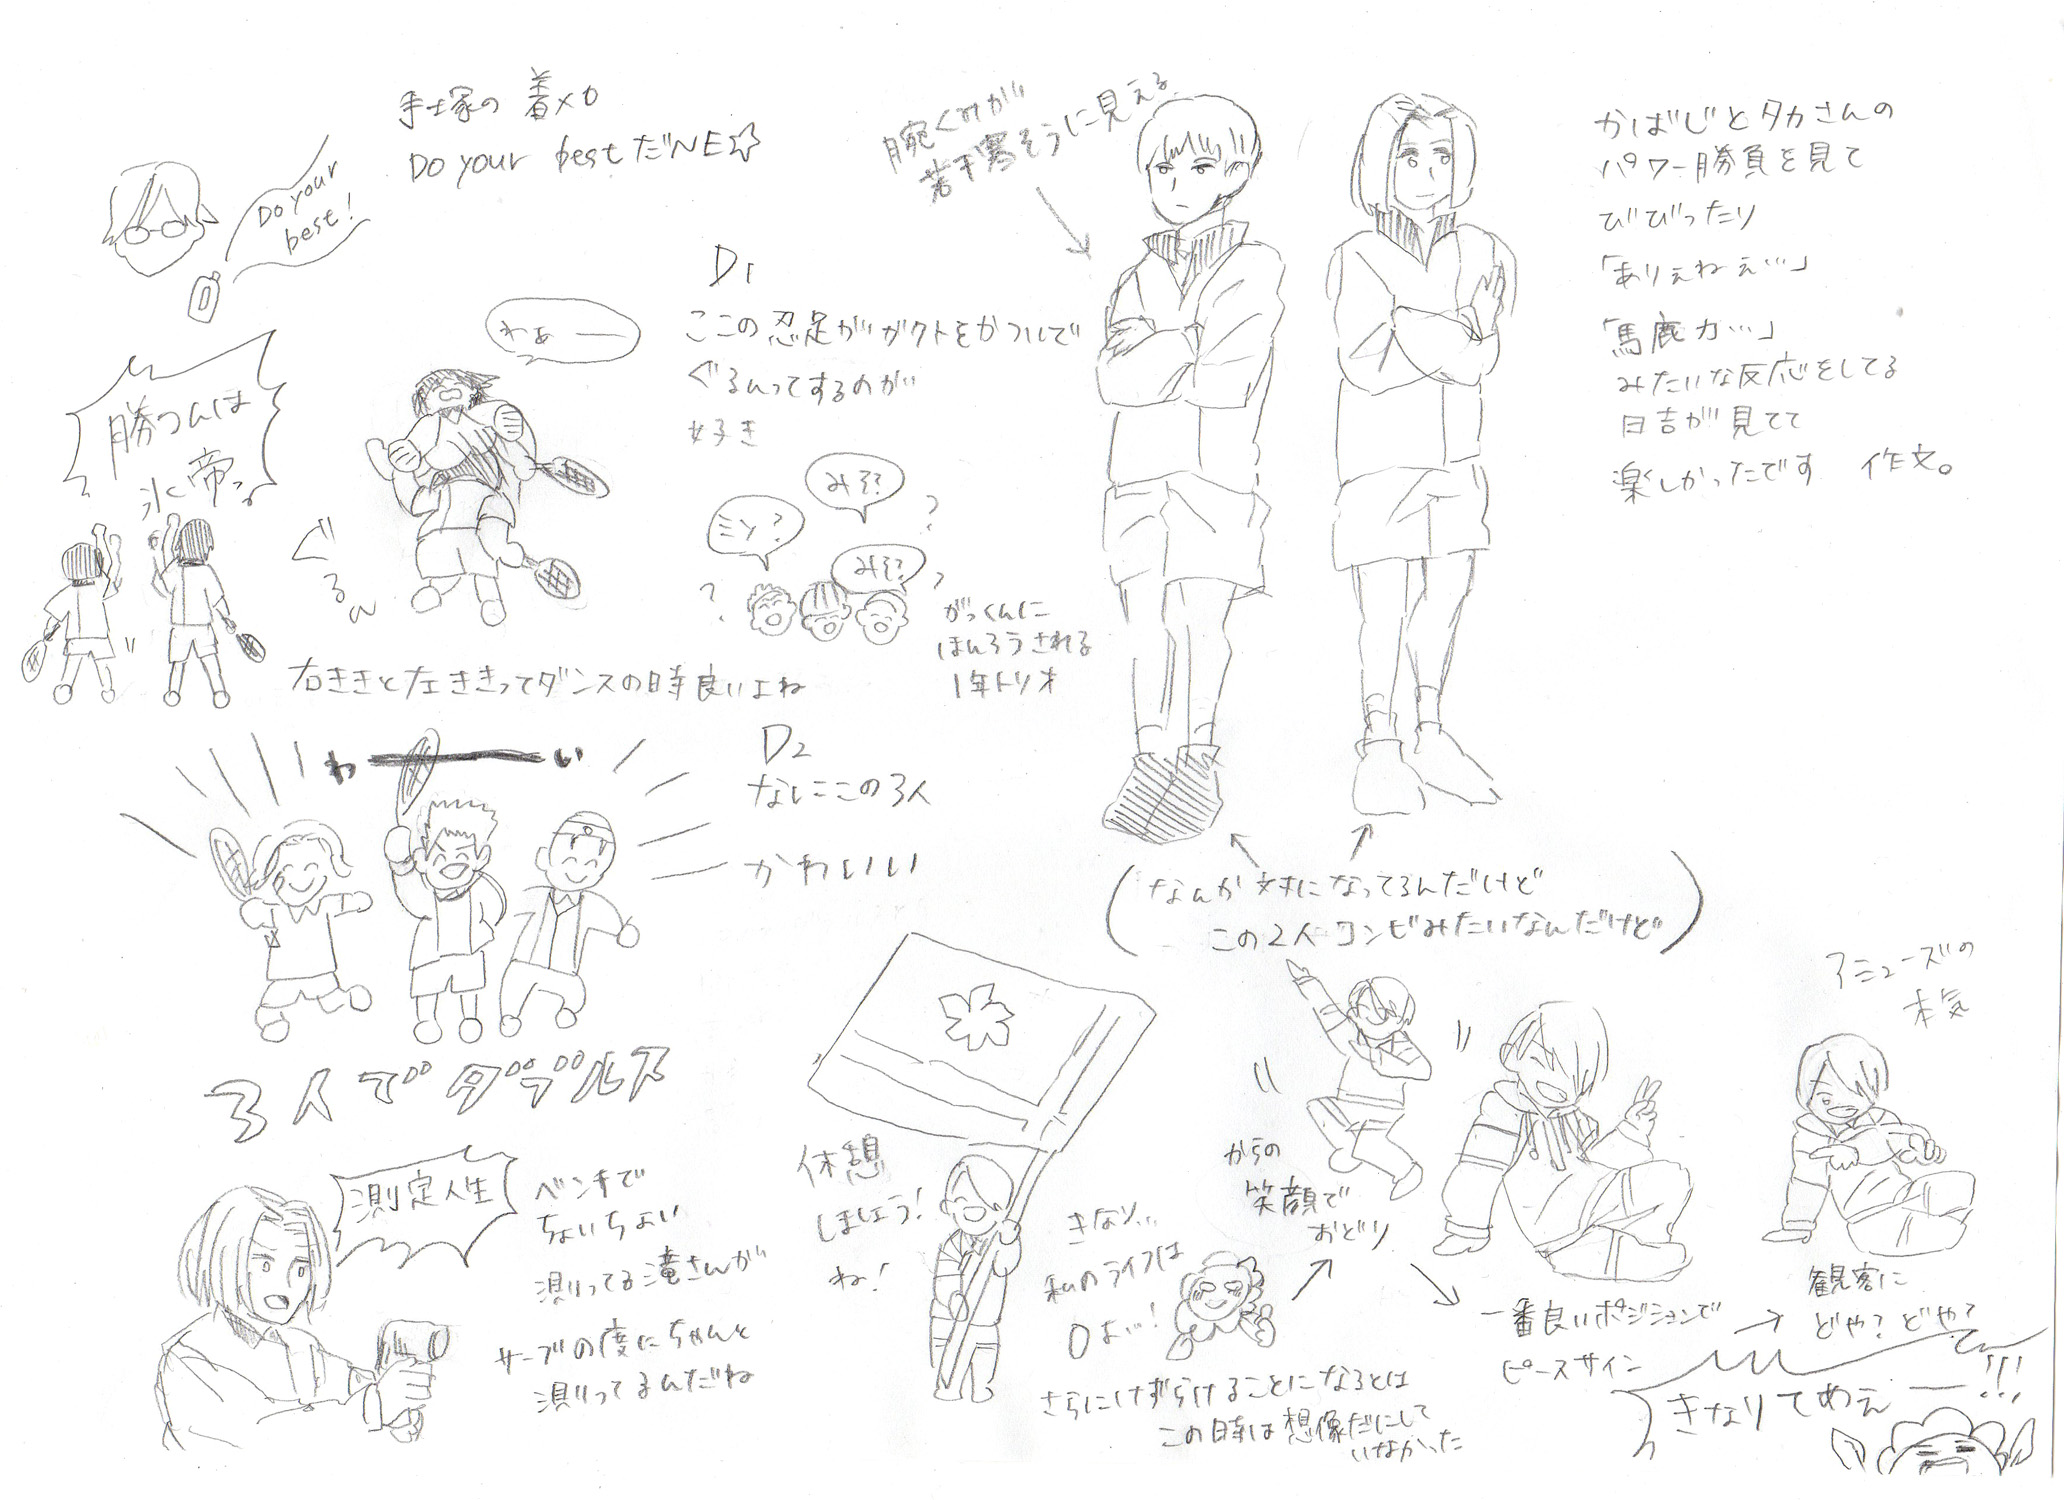 手塚の着メロ
Do your bestだNE☆
Do your
best!
勝つんは
氷帝っ
わぁー
ぐるん
D1
ここの忍足がガクトをかついで
ぐるんってするのが
好き
ミソ?
みそ?
みそ?
?
?
?
がっくんに
ほんろうされる
1年トリオ
右ききと左ききってダンスの時良いよね
わーい
D2
なにこの3人
かわいい
3人でダブルス
測定人生
ベンチで
ちょいちょい
測ってる滝さんが
サーブの度にちゃんと
測ってるんだね
腕くみが
若干寒そうに見える
かばじとタカさんの
パワー勝負を見て
びびったり
「ありえねぇ…」
「馬鹿力…」
みたいな反応をしてる
日吉が見てて
楽しかったです 作文。
(なんか対になってるんだけど
この2人コンビみたいなんだけど)
休憩
しましょう!
ね!
きなり…
私のライフは
0よ…!
さらにけずられることになるとは
この時は想像だにして
いなかった
からの
笑顔で
おどり
一番良いポジションで
ピースサイン
アミューズの
本気
観客に
どや?どや?
きなりてめぇー!!!